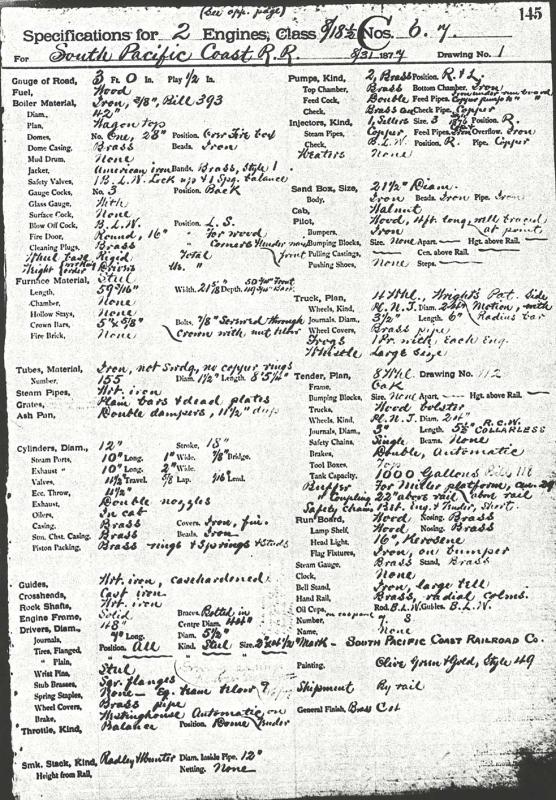 (See opp. page)
145
Specifications for 2 Engines, Class 8/18½ C Nos. 6. 7.
For South Pacific Coast R. R. 8/31 1877 Drawing No. 1
Gauge of Road, 3 Ft. 0 In. Play ½ In.
Fuel, Wood
Boiler Material, Iron, 3/8", Bill 393
Diam., 42"
Plan, Wagon top
Domes, No. One, 28" Position. Over Fire box
Dome Casing, Brass Beads, Iron
Mud Drum, None
Jacket, American iron Bands, Brass, Style 1.
Safety Valves, 1 B.L.W. Lock up & 1 Spg. balance
Gauge Cocks, No. 3 Position. Back
Glass Gauge, With
Surface Cock, None
Blow Off Cock, B.L.W. Position. L. S.
Fire Door, Round, 16" " For wood
Cleaning Plugs, Brass " Corners & under
Wheel base Rigid Total
Weight Drivers
Furnace Material, Steel
Length, 59 7/16" Width. Depth. Front Back
Chamber, None
Hollow Stays, None
Crown Bars, 5" x 5/8" Bolts, 7/8" Screwed through
Fire Brick, None crown with nut below
Tubes, Material, Iron, not Swdg, no copper rings
Number, 155 Diam. 1½" Length. 8' 5 1/16"
Steam Pipes, Wrt. iron
Grates, Plain bars & dead plates
Ash Pan, Double dampers, 11½" deep
Cylinders, Diam., 12" Stroke, 18"
Steam Ports, 10" Long. 1" Wide. 7/8" Bridge.
Exhaust " 10" Long. 2" Wide.
Valves, Travel. 5/8 Lap. 1/16 Lead.
Ecc. Throw,
Exhaust, Double nozzles
Oilers, In cab
Casing, Brass Covers. Iron, fin.
Stm. Chst. Casing, Brass Beads, Iron
Piston Packing, Brass rings & Springs & Studs
Guides, Wrt. iron, casehardened
Crossheads, Cast iron
Rock Shafts, Wrt. iron
Engine Frame, Solid Braces. Bolted in
Drivers, Diam., 48" Centre Diam. 44"
Journals, 7" Long. Diam. 5½"
Tires, Flanged, Position. All Kind. Steel Size.
" Plain,
Wrist Pins, Steel
Stub Brasses, Sqr. flanges
Spring Staples, None - Eq. beam below
Wheel Covers, Brass pipe
Brake, Westinghouse Automatic on
Throttle, Kind, Balance Position. Dome Tender
Smk. Stack, Kind, Radley & Hunter Diam. Inside Pipe. 12"
Height from Rail, Netting. None
Pumps, Kind, 2, Brass Position. R. & L.
Top Chamber, Brass Bottom Chamber. Iron
Feed Cock, Double Feed Pipes. Copper
Check, Brass Check Pipe. Copper
Injectors, Kind, 1, Sellers Size. 3 1876 Position. R.
Steam Pipes, Copper Feed Pipes. Overflow. Iron
Check, B.L.W. Position. R. Pipe. Copper
Heaters None
Sand Box, Size, 21½" Diam.
Body, Iron Beads Iron Pipe. Iron
Cab, Walnut
Pilot, Wood, 4 ft. long, well braced
Bumpers, Iron at point
Bumping Blocks, Size. None Apart. — Hgt. above Rail. —
Pulling Castings, Cen. above Rail.
Pushing Shoes, None Steps. —
Truck, Plan, 4 Whl., Wright's Pat. Side
Wheels, Kind, Pl. N. J. Diam. 24" Motion, with
Journals, Diam., 3½" Length. 6" Radius bar
Wheel Covers, Brass pipe
Frogs 1 Pr. with Each Eng.
Whistle Large size
Tender, Plan, 8 Whl. Drawing No. 112
Frame, Oak
Bumping Blocks, Size. None Apart. — Hgt. above Rail. —
Trucks, Wood bolster
Wheels, Kind, Pl. N. J. Diam. 24"
Journals, Diam., 3" Length. 5½" R.C.W. COLLARLESS
Safety Chains, Single Beams. None
Brakes, Double, Automatic
Tool Boxes, Top
Tank Capacity, 1000 Gallons
Buffer For Miller platform,
Coupling 22" above rail above rail
Safety Chains Bet. Eng. & Tender, Short.
Run Board, Wood Nosing. Brass
Lamp Shelf, Wood Nosing. Brass
Head Light, 16", Kerosene
Flag Fixtures, Iron, on bumper
Steam Gauge, Brass Stand. Brass
Clock, None
Bell Stand, Iron, Large bell
Hand Rail, Brass, radial colms.
Oil Cups, Rod. B.L.W. Guides. B.L.W.
Number,
Name, None
Mark — SOUTH PACIFIC COAST RAILROAD CO.
Painting, Olive Green & Gold, Style 49
Shipment By rail
General Finish, Brass Cst